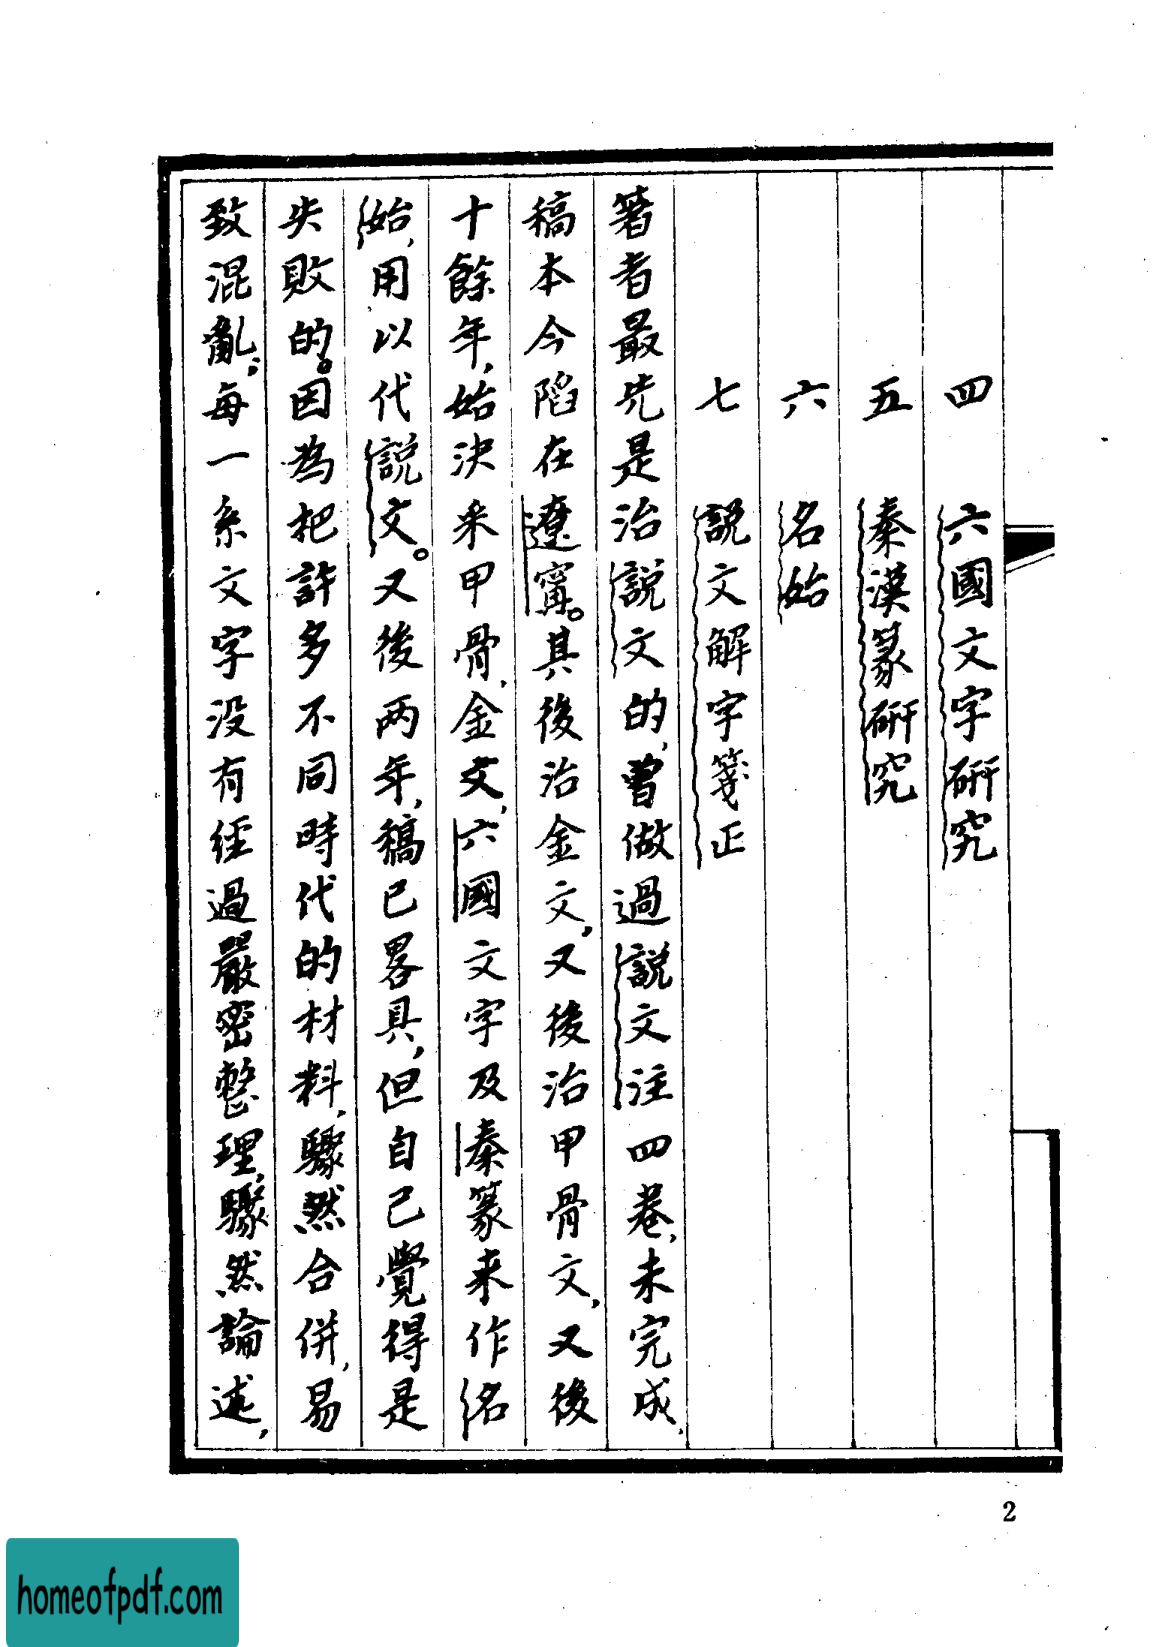 四 六國文字研究
五 秦漢篆研究
六 名始
七 說文解字箋正
著者最先是治說文的，曾做過說文注四卷，未完成，
稿本今陷在遼寧。其後治金文，又後治甲骨文，又後
十餘年，始決采甲骨，金文，六國文字及秦篆来作名
始，用以代說文。又後两年，稿已畧具，但自己覺得是
失敗的。因為把許多不同時代的材料，驟然合併，易
致混亂；每一系文字没有經過嚴密整理，驟然論述，
2
homeofpdf.com